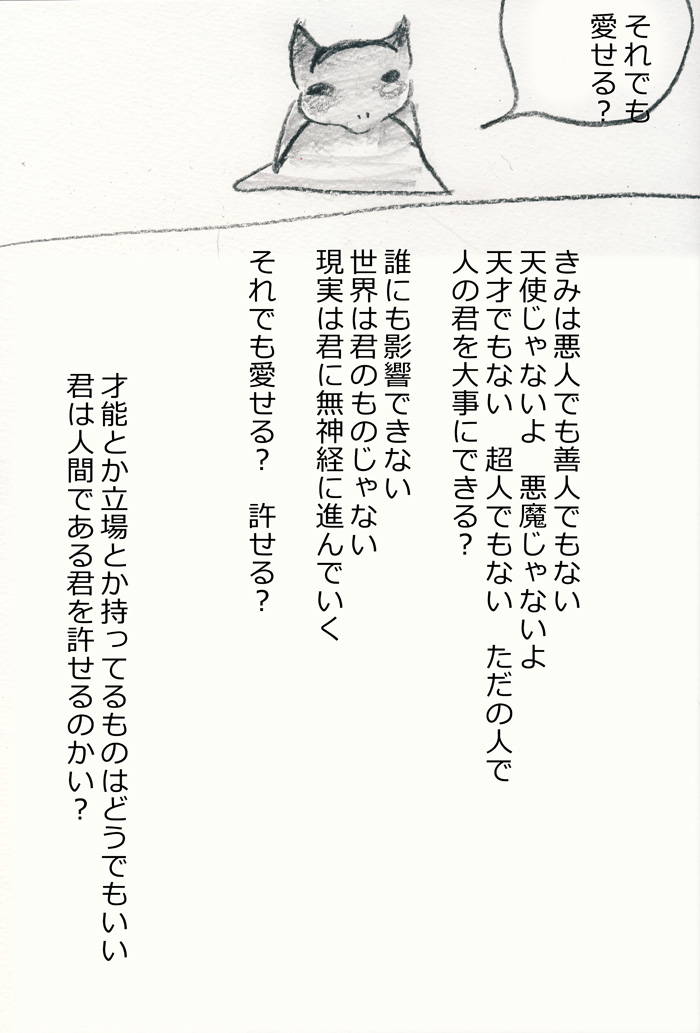 それでも
愛せる？
きみは悪人でも善人でもない
天使じゃないよ　悪魔じゃないよ
天才でもない　超人でもない　ただの人で
人の君を大事にできる？
誰にも影響できない
世界は君のものじゃない
現実は君に無神経に進んでいく
それでも愛せる？　許せる？
才能とか立場とか持ってるものはどうでもいい
君は人間である君を許せるのかい？